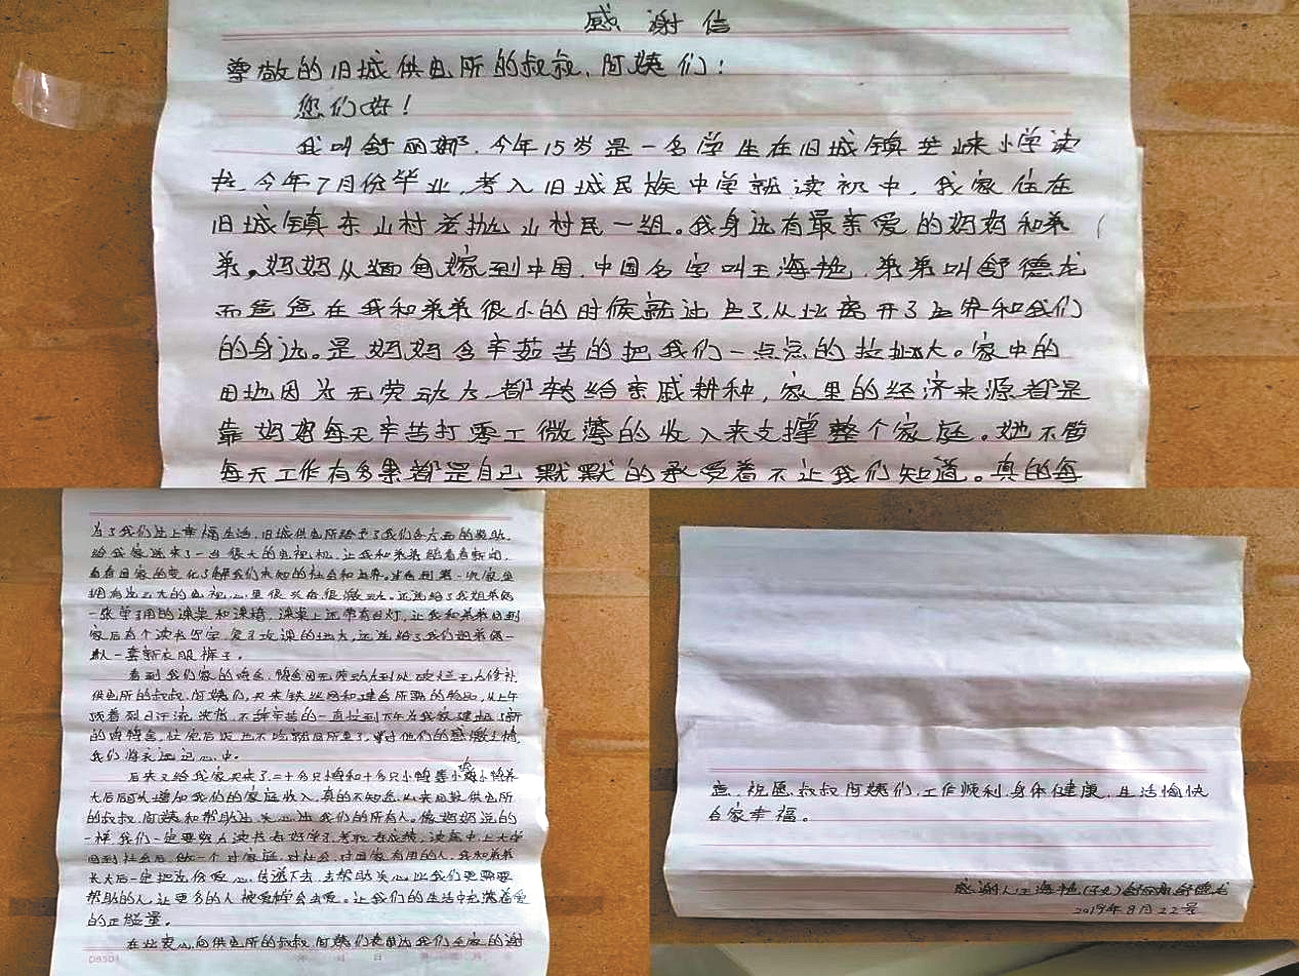 感谢信
尊敬的旧城供电所的叔叔、阿姨们！
您们好！
我叫舒丽娜，今年15岁是一名学生在旧城镇芒崃小学读
书，今年7月份毕业，考入旧城民族中学就读初中，我家住在
旧城镇东山村老抛山村民一组。我身边有最亲爱的妈妈和弟
弟。妈妈从缅甸嫁到中国，中国名字叫王海艳，弟弟叫舒德龙
而爸爸在我和弟弟很小的时候就过世了，从此离开了世界和我们
的身边。是妈妈含辛茹苦的把我们一点点的拉扯大。家中的
田地因为无劳动力都转给亲戚耕种，家里的经济来源都是
靠妈妈每天辛苦打零工微薄的收入来支撑整个家庭。她不管
每天工作有多累都是自己默默的承受着不让我们知道。真的每
为了我们过上幸福生活，旧城供电所给予了我们各方面的帮助，
给我家送来了一台很大的电视机，让我和弟弟能看看新闻，
看看国家的变化了解我们未知的社会和世界。当看到第一次家里
拥有这么大的电视心里很兴奋很激动。还送给了我姐弟俩
一张学习用的课桌和课椅，课桌上还带有台灯，让我和弟弟回到
家后有个读书写字，复习功课的地方，还送给了我们姐弟俩一
人一套新衣服裤子。
看到我们家的鸡舍，鸭舍因无劳动力到处破烂无力修补
供电所的叔叔、阿姨们，买来铁丝网和建舍所需的物品，从上午
顶着烈日汗流浃背，不辞辛苦的一直忙到下午为我家建起了新
的鸡鸭舍，忙完后饭也不吃就回所里了，对他们的感激之情
我们将永远记心中。
后来又给我家买来了二十多只小鸡和十多只小鸭，养小鸡小鸭养
大后可以增加我们的家庭收入，真的不知怎么来回报供电所
的叔叔、阿姨和帮助过关心过我们的所有人。像妈妈说的
一样，我们一定要努力读书好好学习，考取好成绩，读高中上大学
回到社会后，做一个对家庭，对社会，对国家有用的人，我和弟弟
长大后一定把这份爱心，传递下去，去帮助关心比我们更需要
帮助的人，让更多的人被爱学会去爱。让我们的生活中充满着爱
的正能量。
在此衷心向供电所的叔叔、阿姨们表达我们全家的谢
意，祝愿叔叔阿姨们，工作顺利，身体健康，生活愉快
合家幸福。
感谢人：王海艳(母亲)舒丽娜舒德龙
2019年8月22号